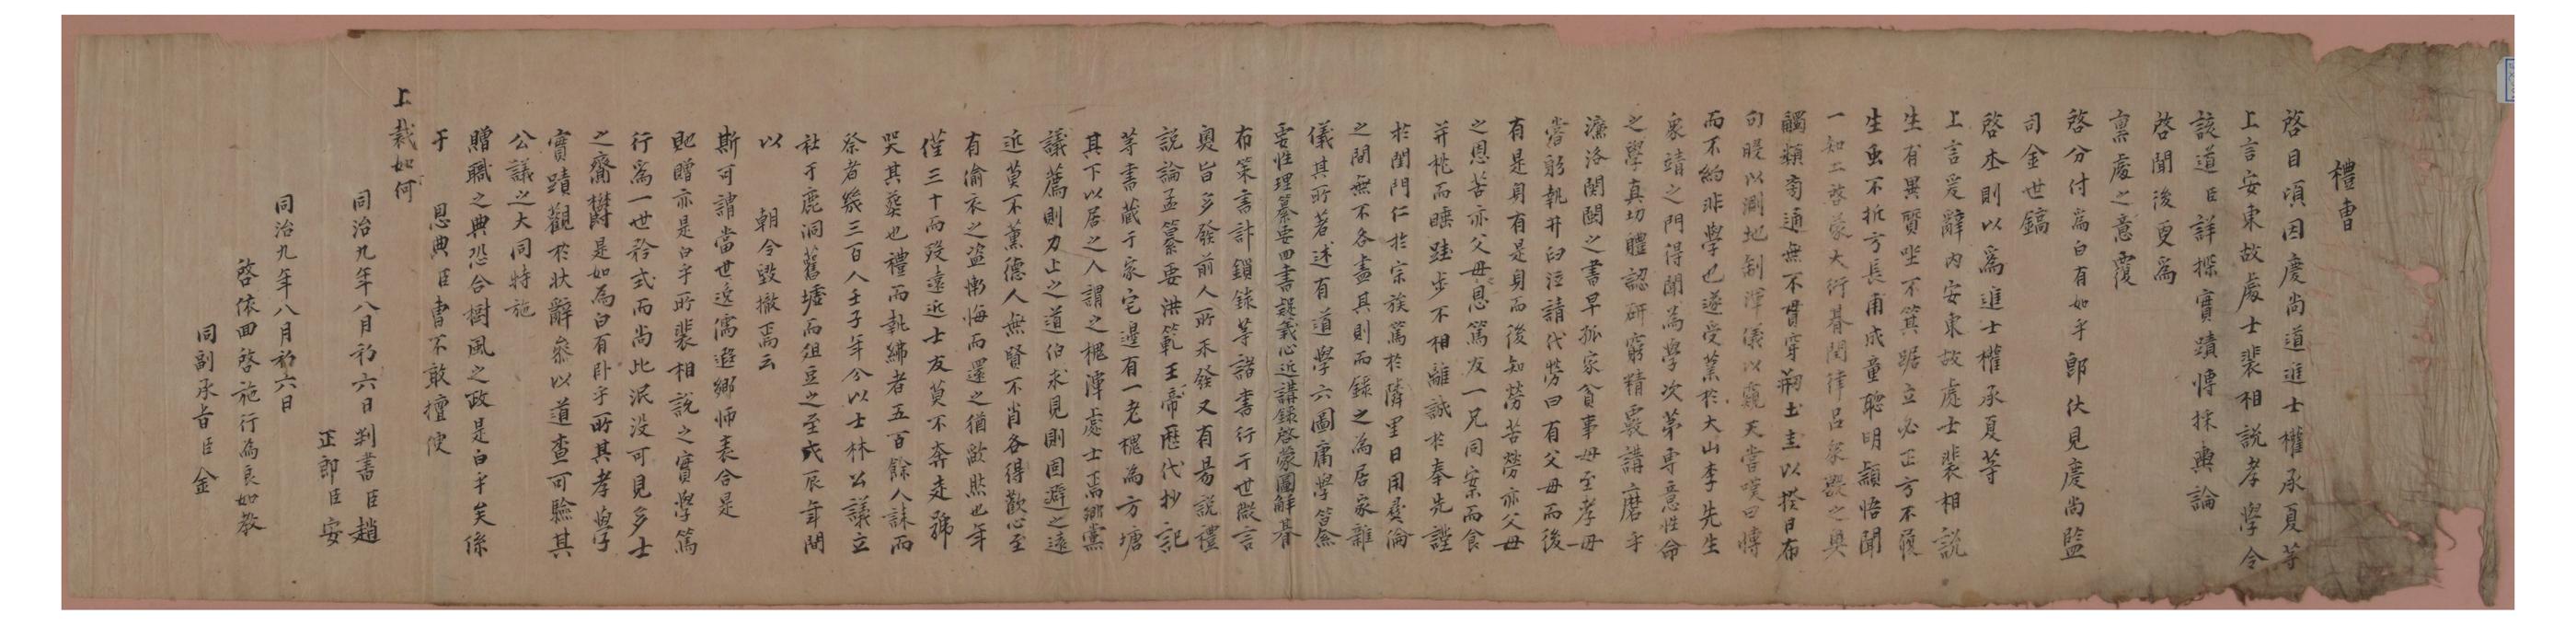 禮曹
啓目頃因慶尚道進士權承夏等
上言安東故處士裴相說孝學令
該道臣詳探實蹟慱採輿論
啓聞後更爲
稟處之意覆
啓分付爲白有如乎郎伏見慶尚監
司金世鎬
啓本則以爲進士權承夏等
上言爰辭內安東故處士裴相說
生有異質坐不箕踞立必正方不履
生虫不折方長甫成童聰明穎悟聞
一知二啓蒙大衍朞閏律呂象數之奧
觸類旁通無不貫穿剏土圭以揆日布
句股以測地制渾儀以窺天嘗嘆曰慱
而不約非學也遂受業於大山李先生
象靖之門得聞爲學次第專意性命
之學真切體認研窮精覈講磨乎
濂洛關閩之書早孤家貧事母至孝母
嘗躬執井臼泣請代勞曰有父母而後
有是身有是身而後知勞苦勞亦父母
之恩苦亦父母恩篤友一兄同案而食
并枕而睡跬步不相離誠於奉先謹
於閨門仁於宗族篤於隣里日用彛倫
之間無不各盡其則而錄之爲居家雜
儀其所著述有道學六圖庸學筭纂
要性理纂要四書疑義心近講錄啓蒙圖解朞
布策書計鎖錄等諸書行于世微言
奧旨多發前人所未發又有易說禮
說論孟纂要洪範王帝歷代抄記
等書藏于家宅邊有一老槐爲方塘
其下以居之人謂之槐潭處士焉鄉黨
議薦則力止之道伯求見則固避之遠
近莫不薰德人無賢不肖各得歡心至
有偷衣之盜慚悔而還之猶歟黙也年
僅三十而歿遠近士友莫不奔走號
哭其葬也禮而執紼者五百餘人誄而
祭者幾三百人壬子年分以士林公議立
社于鹿洞舊墟而俎豆之至戊辰年間
以　朝令毀撤焉云
斯可謂當世逸儒遐鄉師表合是
貤贈亦是白乎所裴相說之實學篤
行爲一世矜式而尚此泯没可見多士
之齎欝是如為白有卧乎所其孝學
實蹟觀於狀辭叅以道查可驗其
公議之大同特施
贈職之典恐合樹風之政是白乎矣係
于　恩典臣曹不敢擅便
上裁如何
同治九年八月初六日判書臣趙
正郎臣安
同治九年八月初六日
啓依回啓施行為良如教
同副承旨臣金